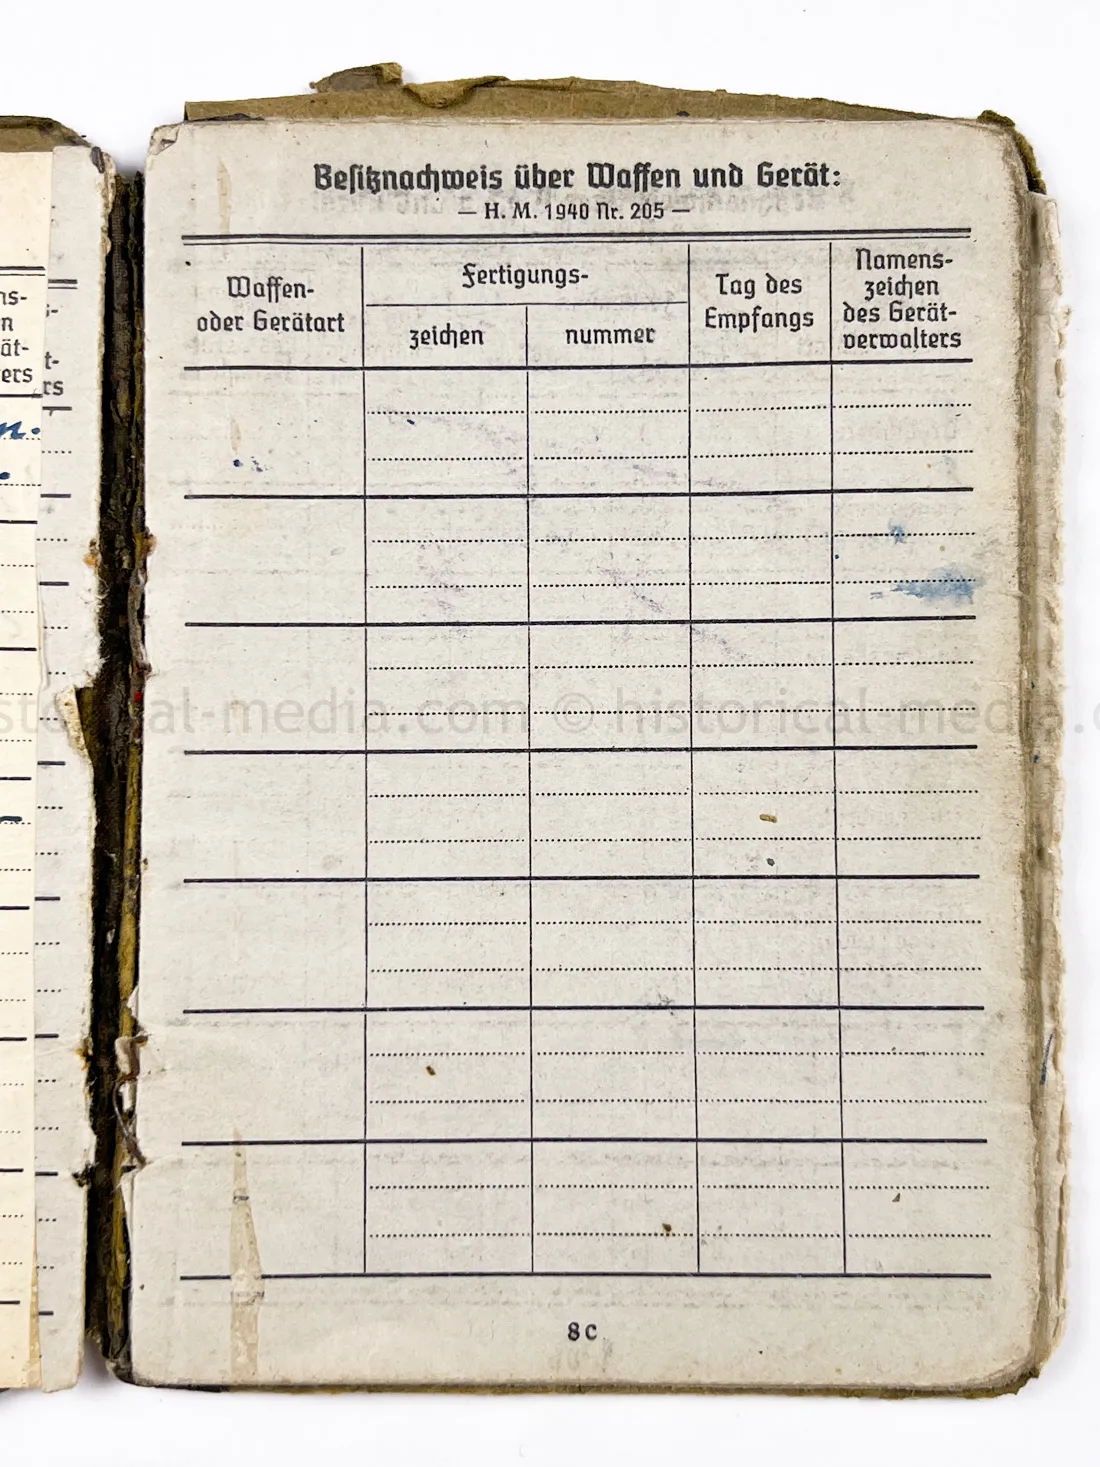 Besitznachweis über Waffen und Gerät:
— H. M. 1940 Nr. 205 —
Waffen-
oder Gerätart
Fertigungs-
zeichen
nummer
Tag des
Empfangs
Namens-
zeichen
des Gerät-
verwalters
historical-media.com © historical-media.c
8c